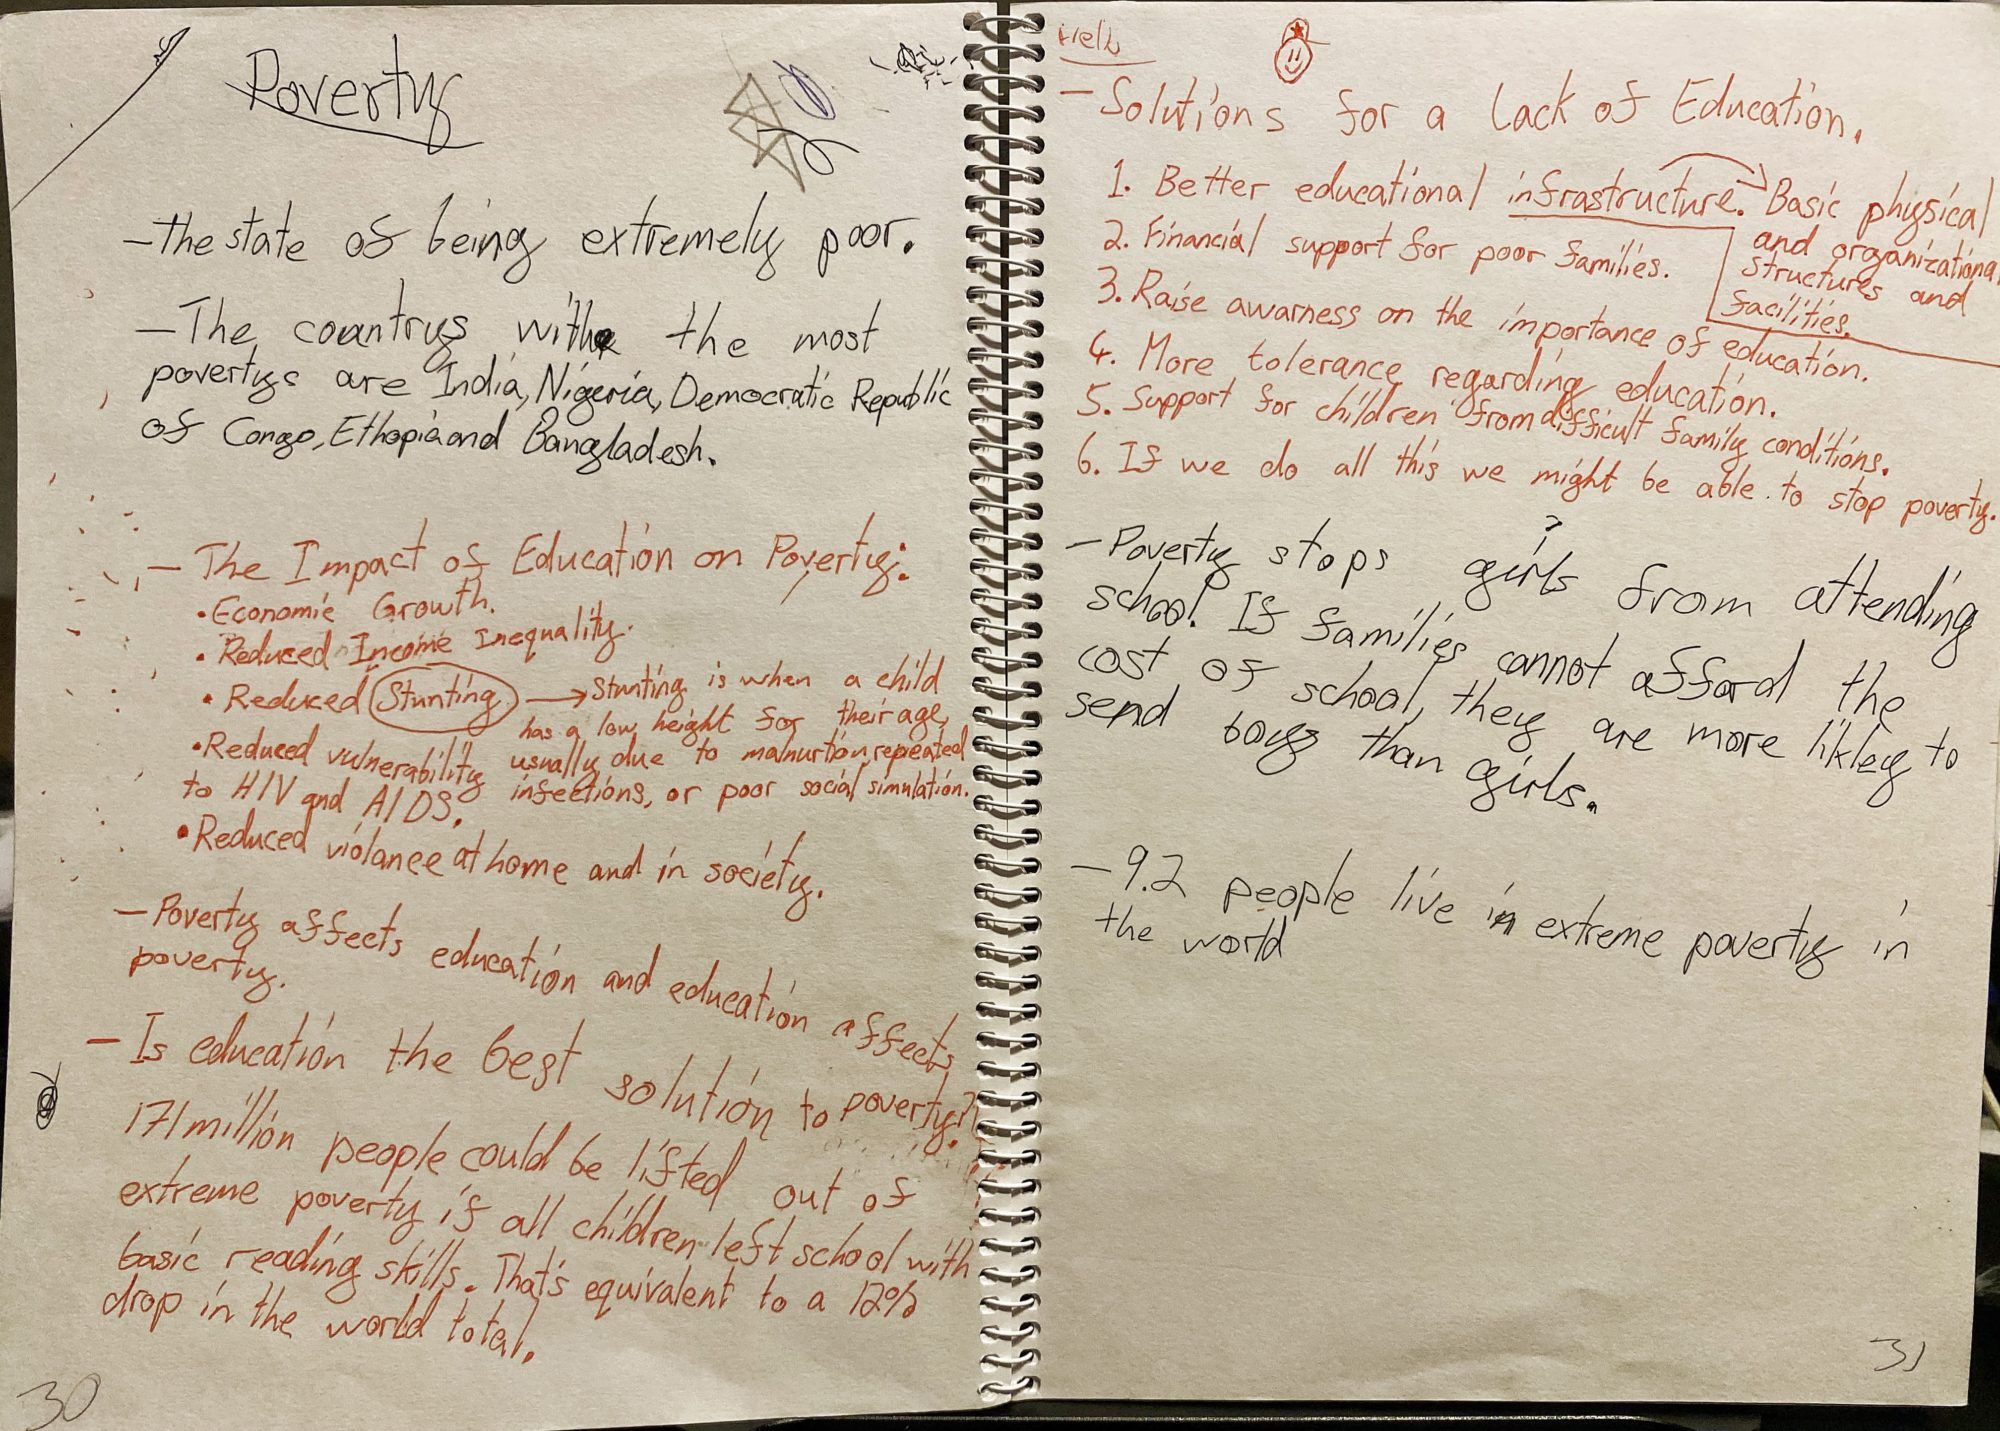 Poverty
-the state of being extremely poor.
-The countrys with the most
povertys are India, Nigeria, Democratic Republic
of Congo, Ethopia and Bangladesh.
- The Impact of Education on Poverty:
• Economic Growth.
• Reduced Income Inequality.
• Reduced Stunting → Stunting is when a child
has a low height for their age,
usually due to malnurtion, repeated
infections, or poor social simulation.
• Reduced vulnerability
to HIV and AIDS.
• Reduced violance at home and in society.
- Poverty affects education and education affects
poverty.
- Is education the best solution to poverty?
171 million people could be lifted out of
extreme poverty if all children left school with
basic reading skills. That's equivalent to a 12%
drop in the world total.
30
- Solutions for a Lack of Education.
1. Better educational infrastructure. → Basic physical
and organizational
structures and
facilities.
2. Financial support for poor families.
3. Raise awarness on the importance of education.
4. More tolerance regarding education.
5. Support for children from difficult family conditions.
6. If we do all this we might be able to stop poverty.
- Poverty stops girls from attending
school. If families cannot afford the
cost of school, they are more likley to
send boys than girls.
- 9.2 people live in extreme poverty in
the world
31